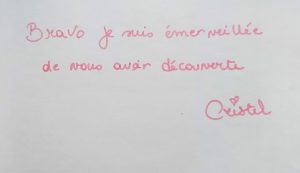 Bravo je suis émerveillée
de vous avoir découverte
Cristel